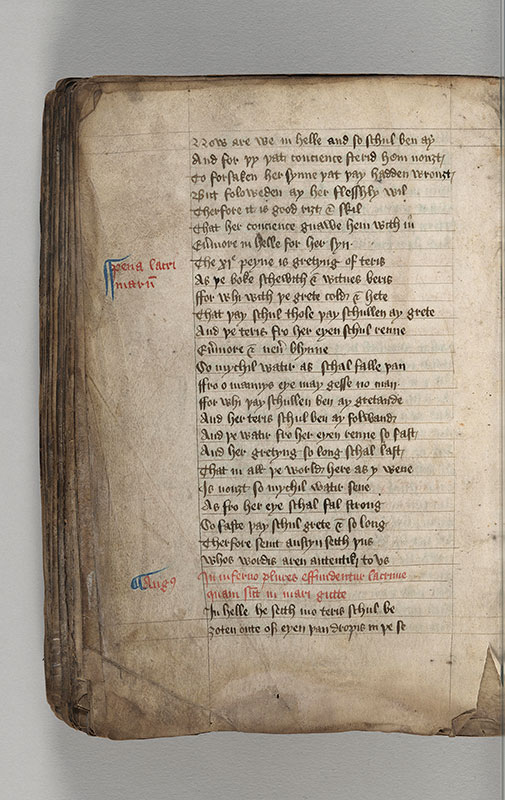 Now are we in helle and so schul ben ay
And for þy þat concience sterid hem nouȝt
To forsaken her synne þat þay hadden wrouȝt
But foloweden ay her flesshly wil
Therfore it is good riȝt & skil
That her concience gnawe hem with in
Eu̅more in helle for her syn
pena lacri
marū
The xiᵉ peyne is gretyng of teris
As þe boke schewith & witnes beris
ffor whi with þe grete cold & hete
That þay schul thole þay schullen ay grete
And þe teris fro her eyen schul renne
Eu̅more & neu̅ blynne
So mychil watir as schal falle þan
ffro o mannys eye may gesse no man
ffor whi þay schullen ben ay gretande
And her teris schul ben ay folwand
And þe watir fro her eyen renne so fast
And her gretyng so long schal last
That in all þe world here as y wene
Is nouȝt so mychil watir sene
As fro her eye schal fal strong
So faste þay schul grete & so long
Therfore seint austyn seith þus
Whos wordis aren autentik to us
Augꝰ
In inferno plures effundentur lacrime
quam sūt in mari gutte
In helle he seith mo teris schul be
ȝoten oute of eyen þan dropis in þe se